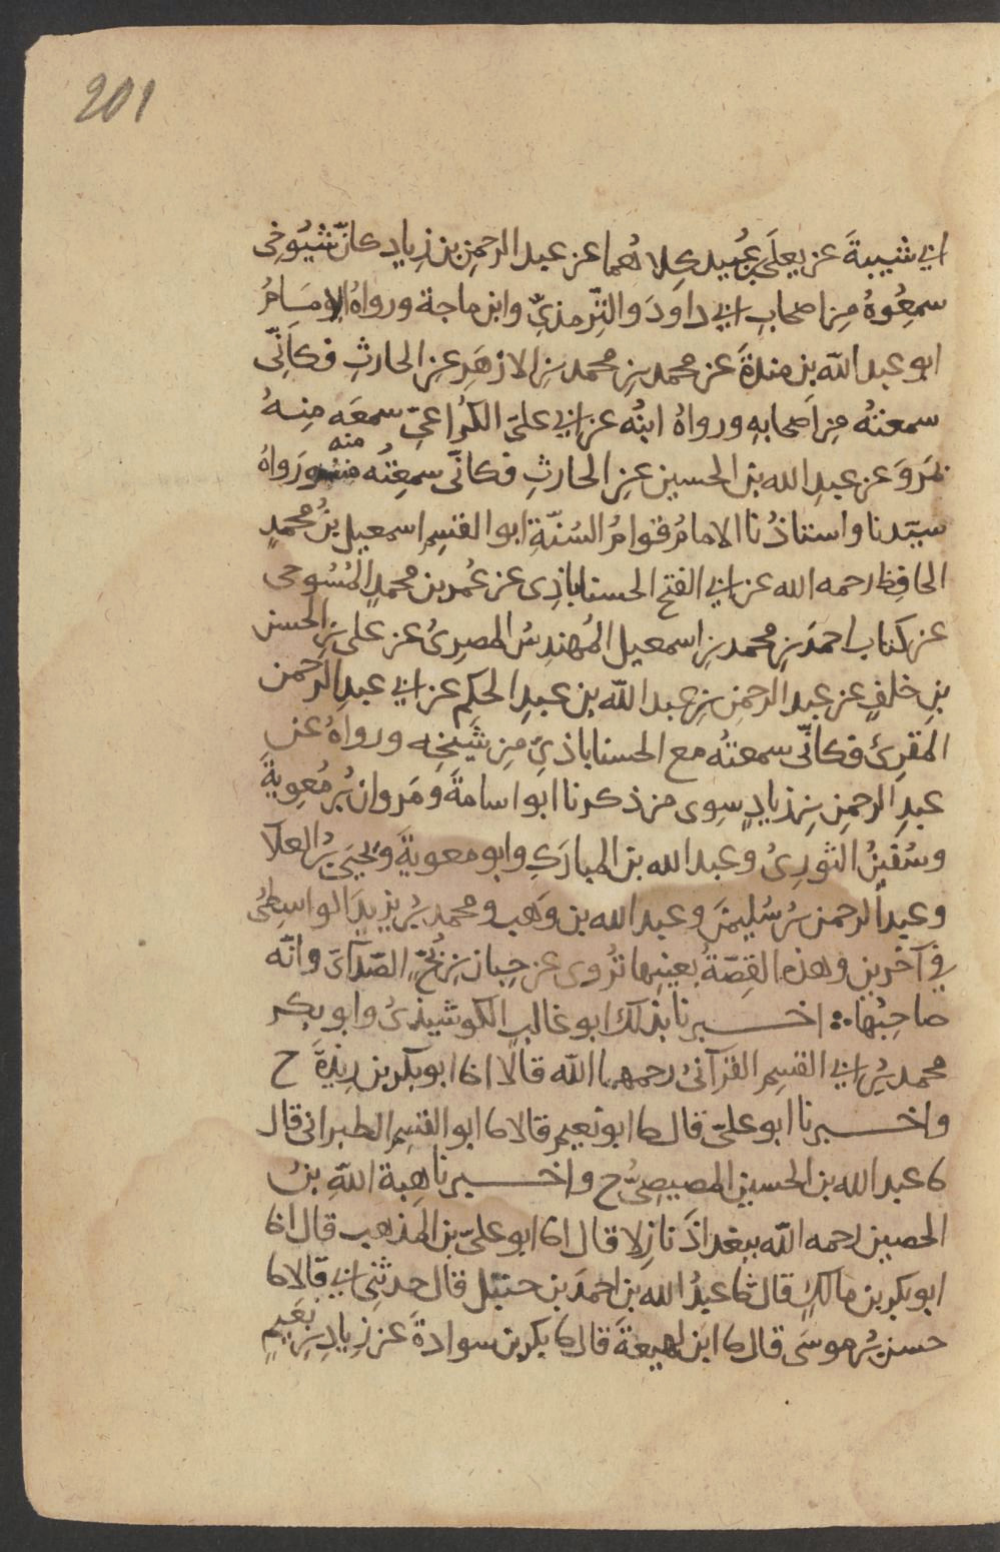 201
ابي شيبةَ عن يعلَى بن عُبيد كِلاهُما عن عبد الرحمنِ بن زِيادٍ كانّ شيُوخي
سمعُوهُ مِن اصحابِ ابي داودَ والتِّرمذيِّ وابن ماجة ورواهُ الإمَامُ
ابو عبد اللّه بن مندةَ عن محمد بنِ محمد بنِ الازهَرِ عنِ الحارثِ فكأنّى
سمعتُه مِن اَصحابهِ ورواهُ ابنُه عن ابي علىّ الكُراعيّ سمعَه مِنهُ
بمَروَ عن عبدِ الله بن الحسين عنِ الحارثِ فكانّى سمعتُه منه ورَواهُ
سيّدنا واستاذُنا الامامُ قوامُ السُنّةِ ابو القسِم اسمعيل بنُ محمدٍ
الحافِظ رحمه الله عن ابي الفتح الحسناباذِى عن عُمر بن محمدٍ المُسُوحى
عن كتاب احمدَ بنِ محمد بنِ اسمعيل المُهندِس المصرِىُ عن على بنِ الحسن
بنِ خلفٍ عن عبد الرحمنِ بنِ عبد اللّه بن عبدِ الحكم عن ابي عبدِ الرحمن
المقرِئ فكانّى سمعتُه مع الحسناباذيِّ مِن شَيخِه ورواهُ عن
عبدِ الرحمنِ بنِ زيادٍ سِوى من ذكرنا ابو اسامةَ ومَروانُ بنُ مُعوِيةَ
وسُفينُ الثورِىُ وعبد الله بن المبارَكِ وابو معويةَ ويَحيَى بنُ العلآ
وعبدُ الرحمن بنُ سُليمنَ وعبد الله بن وَهَب ومحمد بنُ يزيدَ الواسِطىُ
في آخرين وهذه القِصّةُ بعينِها تُروى عن حِبان بنِ بُحٍّ الصّدآئ وانّه
صاحِبُها ∴ اخــبرنا بذلك ابو غالبٍ الكوشيذىُ وابو بكر
محمد بنُ ابي القسِم القرآنىُ رحمهما اللّه قالا انا ابو بكر بن رِيذةَ ح
واخــبرنا ابو علىّ قال نا ابو نعيم قالا نا ابو القسِم الطبرانى قال
نا عبد الله بن الحسين المصيصىُّ ح واخــبرنا هِبة اللّهِ بنُ
الحصين رحمه اللّه ببغداذَ نازِلا قال انا ابو علىّ بن المذهب قال انا
ابو بكر بن مالكٍ قال ثنا عبدُ الله بن احمدَ بن حنبَل قال حدثنِى ابي قالا نا
حسن بنُ موسَى قال نا ابن لهيعةَ قال نا بكر بن سوادةَ عن زِيادِ بنِ نعَيمٍ